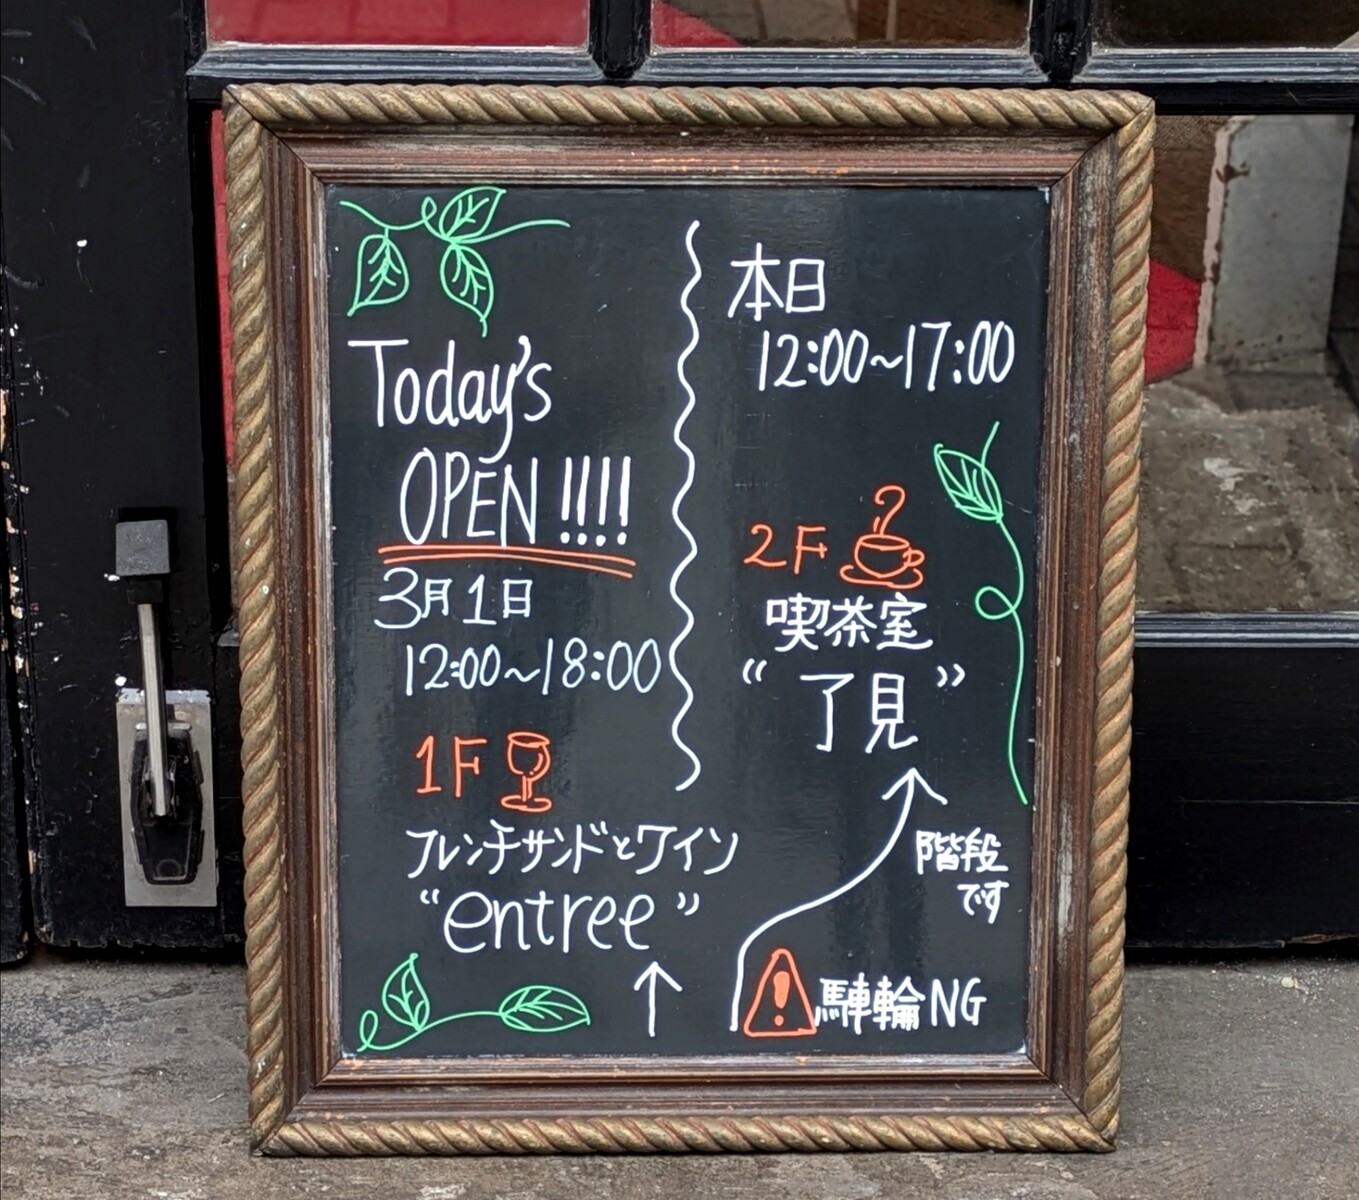 Today's
OPEN!!!!
3月1日
12:00～18:00
1F
フレンチサンドとワイン
"entree"
本日
12:00～17:00
2F
喫茶室
"了見"
階段
です
駐輪NG